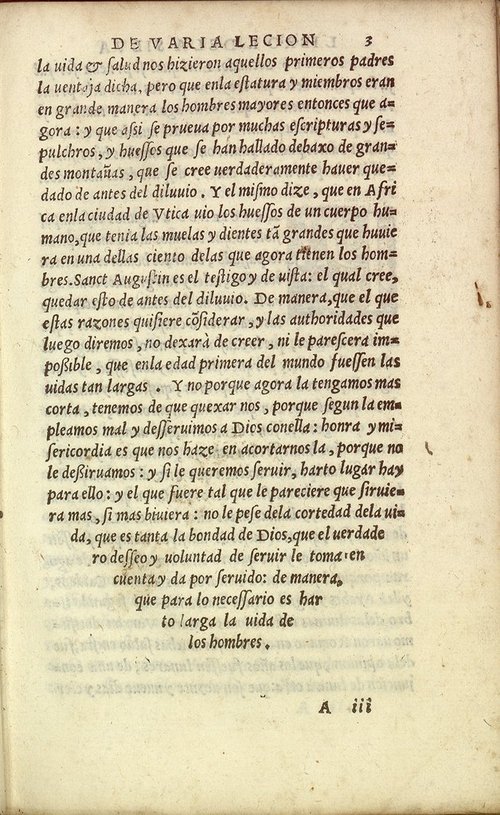 DE VARIA LECION 3
la uida & salud nos hizieron aquellos primeros padres
la uentaja dicha, pero que enla estatura y miembros eran
en grande manera los hombres mayores entonces que a=
gora : y que assi se prueua por muchas escripturas y se=
pulchros, y huessos que se han hallado debaxo de gran=
des montañas, que se cree uerdaderamente hauer que=
dado de antes del diluuio. Y el mismo dize, que en Afri
ca enla ciudad de Vtica uio los huessos de un cuerpo hu=
mano, que tenia las muelas y dientes tã grandes que huuie
ra en una dellas ciento delas que agora tienen los hom=
bres. Sanct Augustin es el testigo y de uista: el qual cree,
quedar esto de antes del diluuio. De manera, que el que
estas razones quisiere cõsiderar, y las authoridades que
luego diremos, no dexarà de creer, ni le parescera im=
possible, que enla edad primera del mundo fuessen las
uidas tan largas. Y no porque agora la tengamos mas
corta, tenemos de que quexar nos, porque segun la em=
pleamos mal y desseruimos a Dios conella: honra y mi=
sericordia es que nos haze en acortarnos la, porque no
le dessiruamos : y si le queremos seruir, harto lugar hay
para ello : y el que fuere tal que le pareciere que siruie=
ra mas, si mas biuiera : no le pese dela cortedad dela ui=
da, que es tanta la bondad de Dios, que el uerdade
ro desseo y uoluntad de seruir le toma en
cuenta y da por seruido: de manera,
que para lo necessario es har
to larga la uida de
los hombres.
A iii